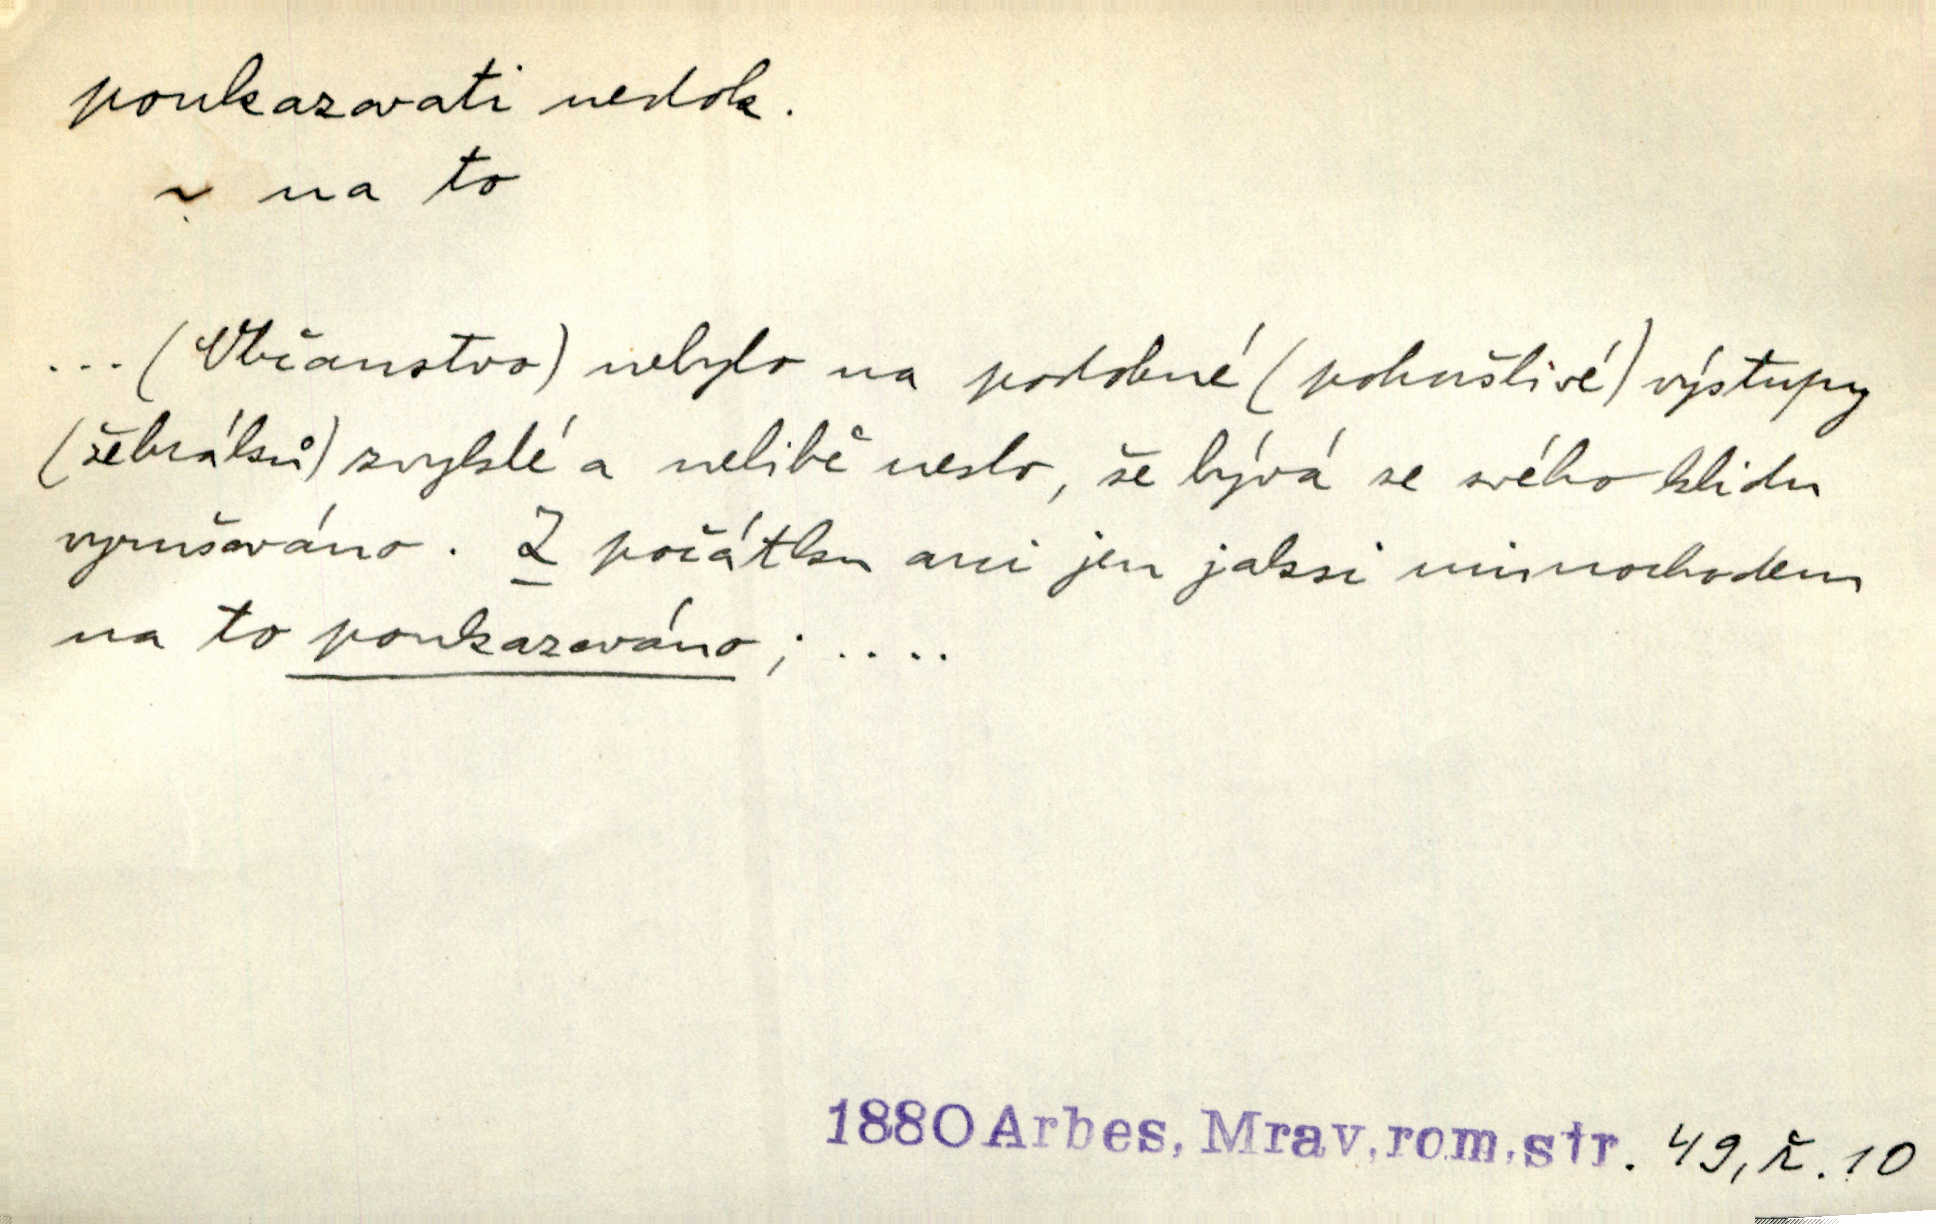 poukazovati nedok.
~ na to
... (Občanstvo) nebylo na podobné (pohoršlivé) výstupy
(žebráků) zvyklé a nelibě neslo, že bývá ze svého klidu
vyrušováno. Z počátku arci jen jaksi mimochodem
na to poukazováno; ....
1880 Arbes, Mrav. rom. str. 49, ř. 10